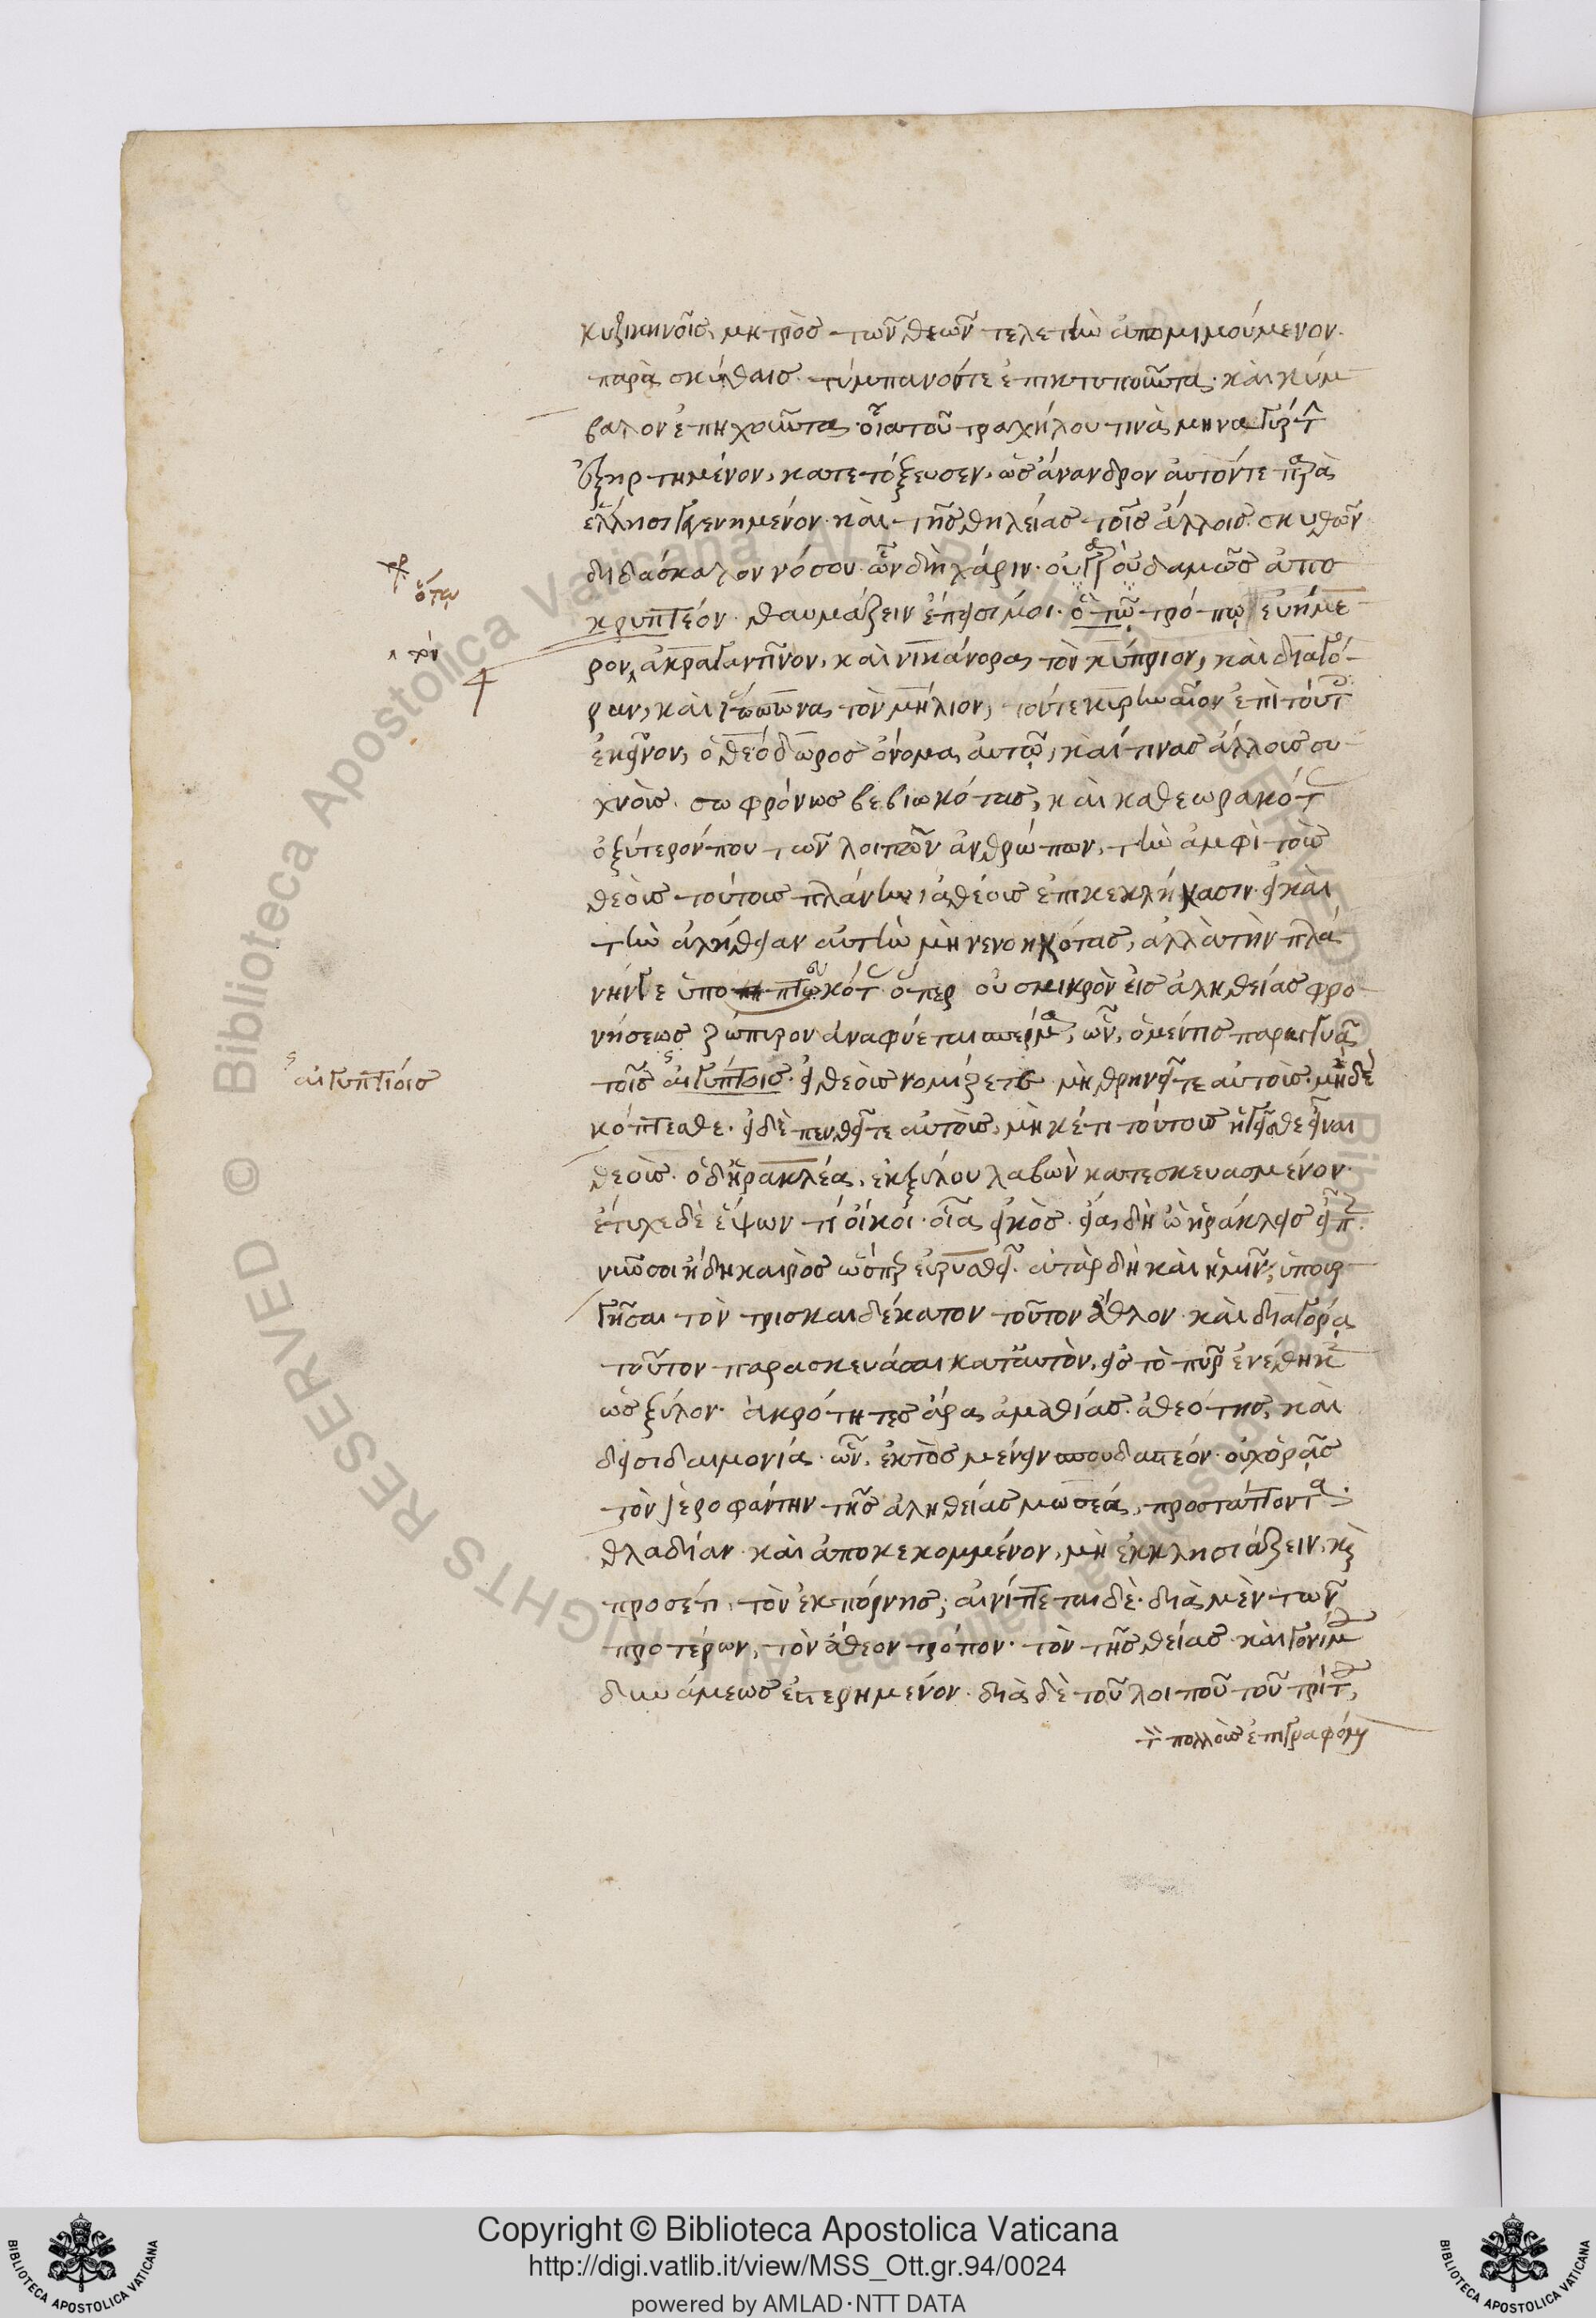 κυζικηνοῖς, μητρὸς τῶν θεῶν τελετὴν ἀπομιμούμενον.
παρὰ σκύθαις. τύμπανόντε ἐπικτυποῦντα. καὶ κύμ
βαλον ἐπηχοῦντα. οἷα τοῦ τραχήλου τινὰ μηναγύρτ
ἐξηρτημένον, κατετόξευσεν, ὡς ἄνανδρον αὐτόντε παρὰ
ἕλλησι γεγενημένον. καὶ τῆς θηλείας τοῖς ἄλλοις σκυθῶν
διδάσκαλον νόσου. ὧν δὴ χάριν. οὐ γὰρ οὐδαμῶς ἀπο
ὅτῳ
κρυπτέον. θαυμάζειν ἔπεισί μοι. ὅτῳ τρόπῳ εὐήμε
ρον, ἀκραγαντῖνον, καὶ νικάνορα τὸν κύπριον, καὶ διαγό
ραν, καὶ ἵππωνα τὸν μήλιον, τόντε κυρηναῖον ἐπὶ τούτ
ἐκεῖνον, ὁ θεόδωρος ὄνομα αὐτῷ, καί τινας ἄλλους συ
χνοὺς. σωφρόνως βεβιωκότας, καὶ καθεωρακότ
ὀξύτερόν που τῶν λοιπῶν ἀνθρώπων, τὴν ἀμφὶ τοὺς
θεοὺς τούτους πλάνην, ἀθέους ἐπικεκλήκασιν. εἰ καὶ
τὴν ἀλήθειαν αὐτὴν μὴ νενοηκότας, ἀλλὰ τὴν πλά
νην γε ὑπο ὅπερ οὐ σμικρὸν εἰς ἀληθείας φρο
νήσεως ζώπυρον ἀναφύεται σπέρμα, ὧν, ὁ μέν τις παρεγγυᾷ
αἰγυπτίοις
τοῖς αἰγυπτίοις. εἰ θεοὺς νομίζετε μὴ θρηνεῖτε αὐτοὺς. μηδὲ
κόπτεσθε. εἰ δὲ πενθεῖτε αὐτοὺς, μηκέτι τούτους ἡγεῖσθε εἶναι
θεοὺς. ὁ δ' ἡρακλέα, ἐκ ξύλου λαβὼν κατεσκευασμένον.
ἔτυχε δὲ ἕψων τι οἴκοι. οἷα εἰκὸς. εἶα δὴ ὦ ἡράκλεις εἶπ.
νῦν σοι ἤδη καιρὸς ὥσπερ εὐρυσθεῖ. ἀτὰρ δὴ καὶ ἡμῖν, ὑπουρ
γῆσαι τὸν τρισκαιδέκατον τοῦτον ἆθλον. καὶ διαγόρᾳ
τοῦτον παρασκευάσαι κατ' αὐτὸν, εἰς τὸ πῦρ ἐνέθηκε
ὡς ξύλον. ἀκρότητες ἄρα ἀμαθίας. ἀθεότης, καὶ
δεισιδαιμονία. ὧν, ἐκτὸς μένειν σπουδαστέον. οὐχ ὁρᾷς
τὸν ἱεροφάντην τῆς ἀληθείας μωσέα, προστάττοντα.
θλαδίαν καὶ ἀποκεκομμένον, μὴ ἐκκλησιάζειν, καὶ
προσέτι, τὸν ἐκ πόρνης; αἰνίττεται δὲ. διὰ μὲν τῶν
προτέρων, τὸν ἄθεον τρόπον. τὸν τῆς θείας καὶ γονίμου
δυνάμεως ἐστερημένον. διὰ δὲ τοῦ λοιποῦ τοῦ τρίτου,
τ πολλοὺς ἐπιγραφόμ
Copyright © Biblioteca Apostolica Vaticana
http://digi.vatlib.it/view/MSS_Ott.gr.94/0024
powered by AMLAD·NTT DATA